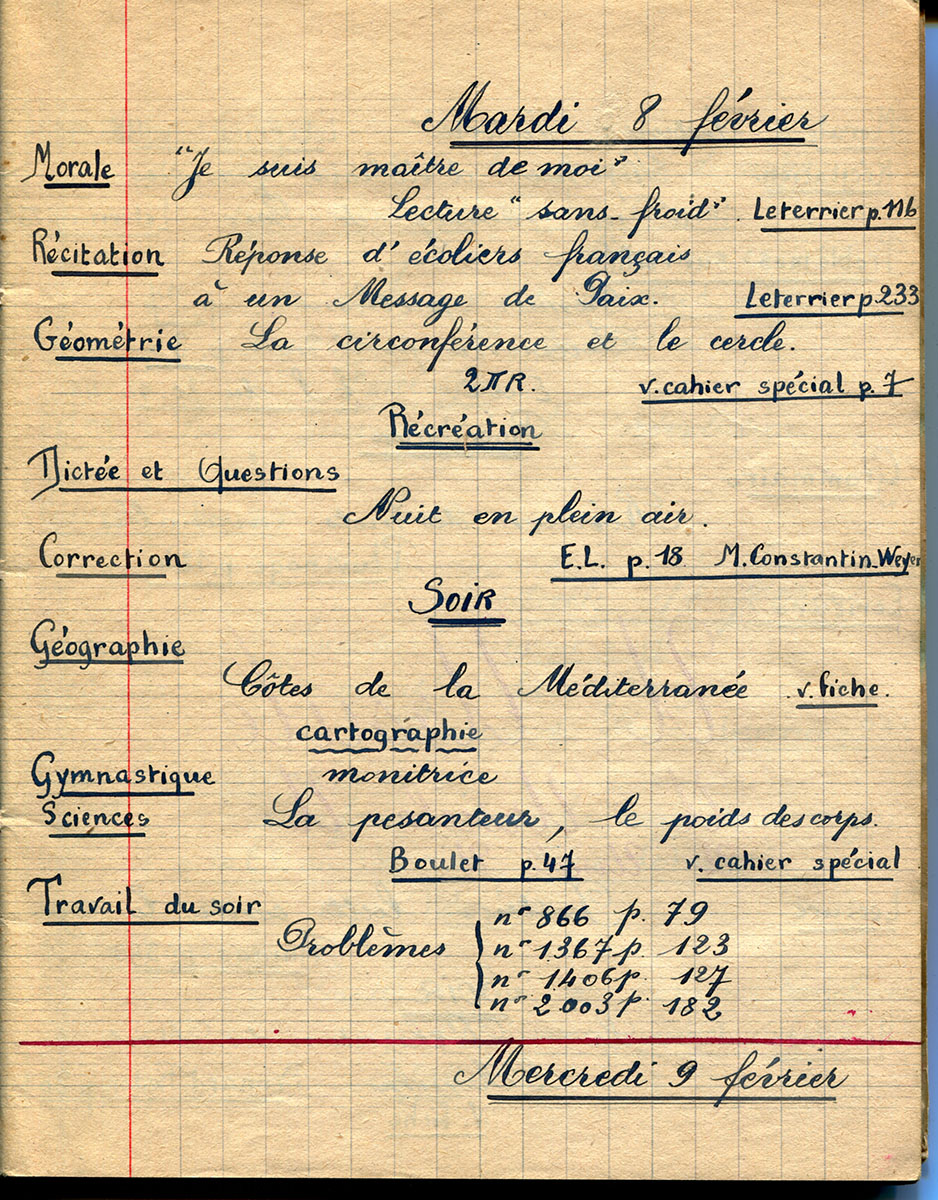 Mardi 8 février
Morale "Je suis maître de moi"
Lecture "sans-froid" Leterrier p.116
Récitation Réponse d'écoliers français
à un Message de Paix. Leterrier p.233
Géométrie La circonférence et le cercle.
2πR. v.cahier spécial p.7
Récréation
Dictée et Questions
Nuit en plein air.
Correction E.L. p.18 M.Constantin-Weyer
Soir
Géographie
Côtes de la Méditerranée v.fiche.
cartographie
Gymnastique monitrice
Sciences La pesanteur, le poids des corps.
Boulet p.47 v. cahier spécial
Travail du soir
Problèmes n° 866 p. 79
n° 1.367 p. 123
n° 1.406 p. 127
n° 2.003 p. 182
Mercredi 9 février